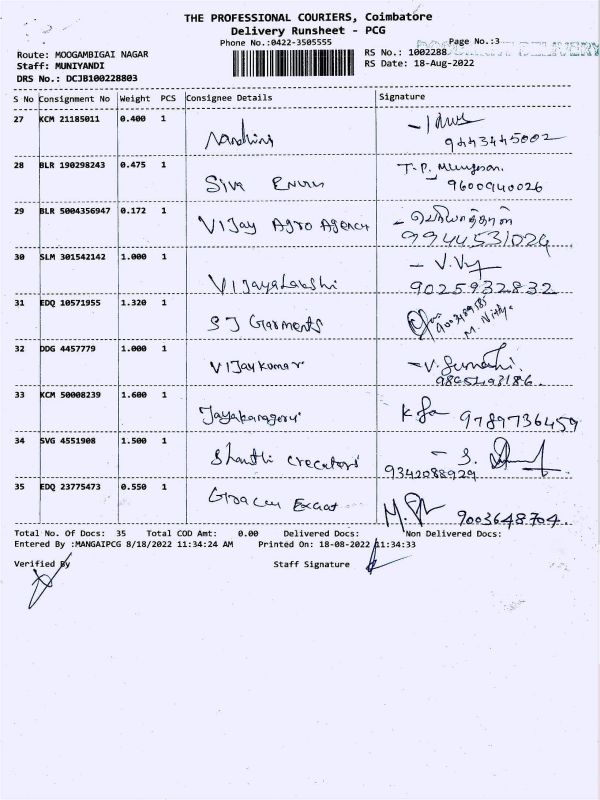 THE PROFESSIONAL COURIERS, Coimbatore
Delivery Runsheet - PCG
Phone No.:0422-3505555
Page No.:3
DELIVERY
Route: MOOGAMBIGAI NAGAR
RS No.: 1002288
Staff: MUNIYANDI
RS Date: 18-Aug-2022
DRS No.: DCJB100228803
S No Consignment No Weight PCS Consignee Details Signature
27 KCM 21185011 0.400 1 Nandhini
9443445002
28 BLR 190298243 0.475 1 Siva T.P. Murugesan
9600940026
29 BLR 5004356947 0.172 1 VIJay Agro Agency
9944531024
30 SLM 301542142 1.000 1 VIJayaLakshi
9025932832
31 EDQ 10571955 1.320 1 S J Garments
M. Nithya
32 DDG 4457779 1.000 1 VIJaykumar
33 KCM 50008239 1.600 1 9789736459
34 SVG 4551908 1.500 1 Shanthi Creators
9342088929
35 EDQ 23775473 0.550 1
9003648704
Total No. Of Docs: 35 Total COD Amt: 0.00 Delivered Docs: Non Delivered Docs:
Entered By :MANGAIPCG 8/18/2022 11:34:24 AM Printed On: 18-08-2022 11:34:33
Verified By Staff Signature